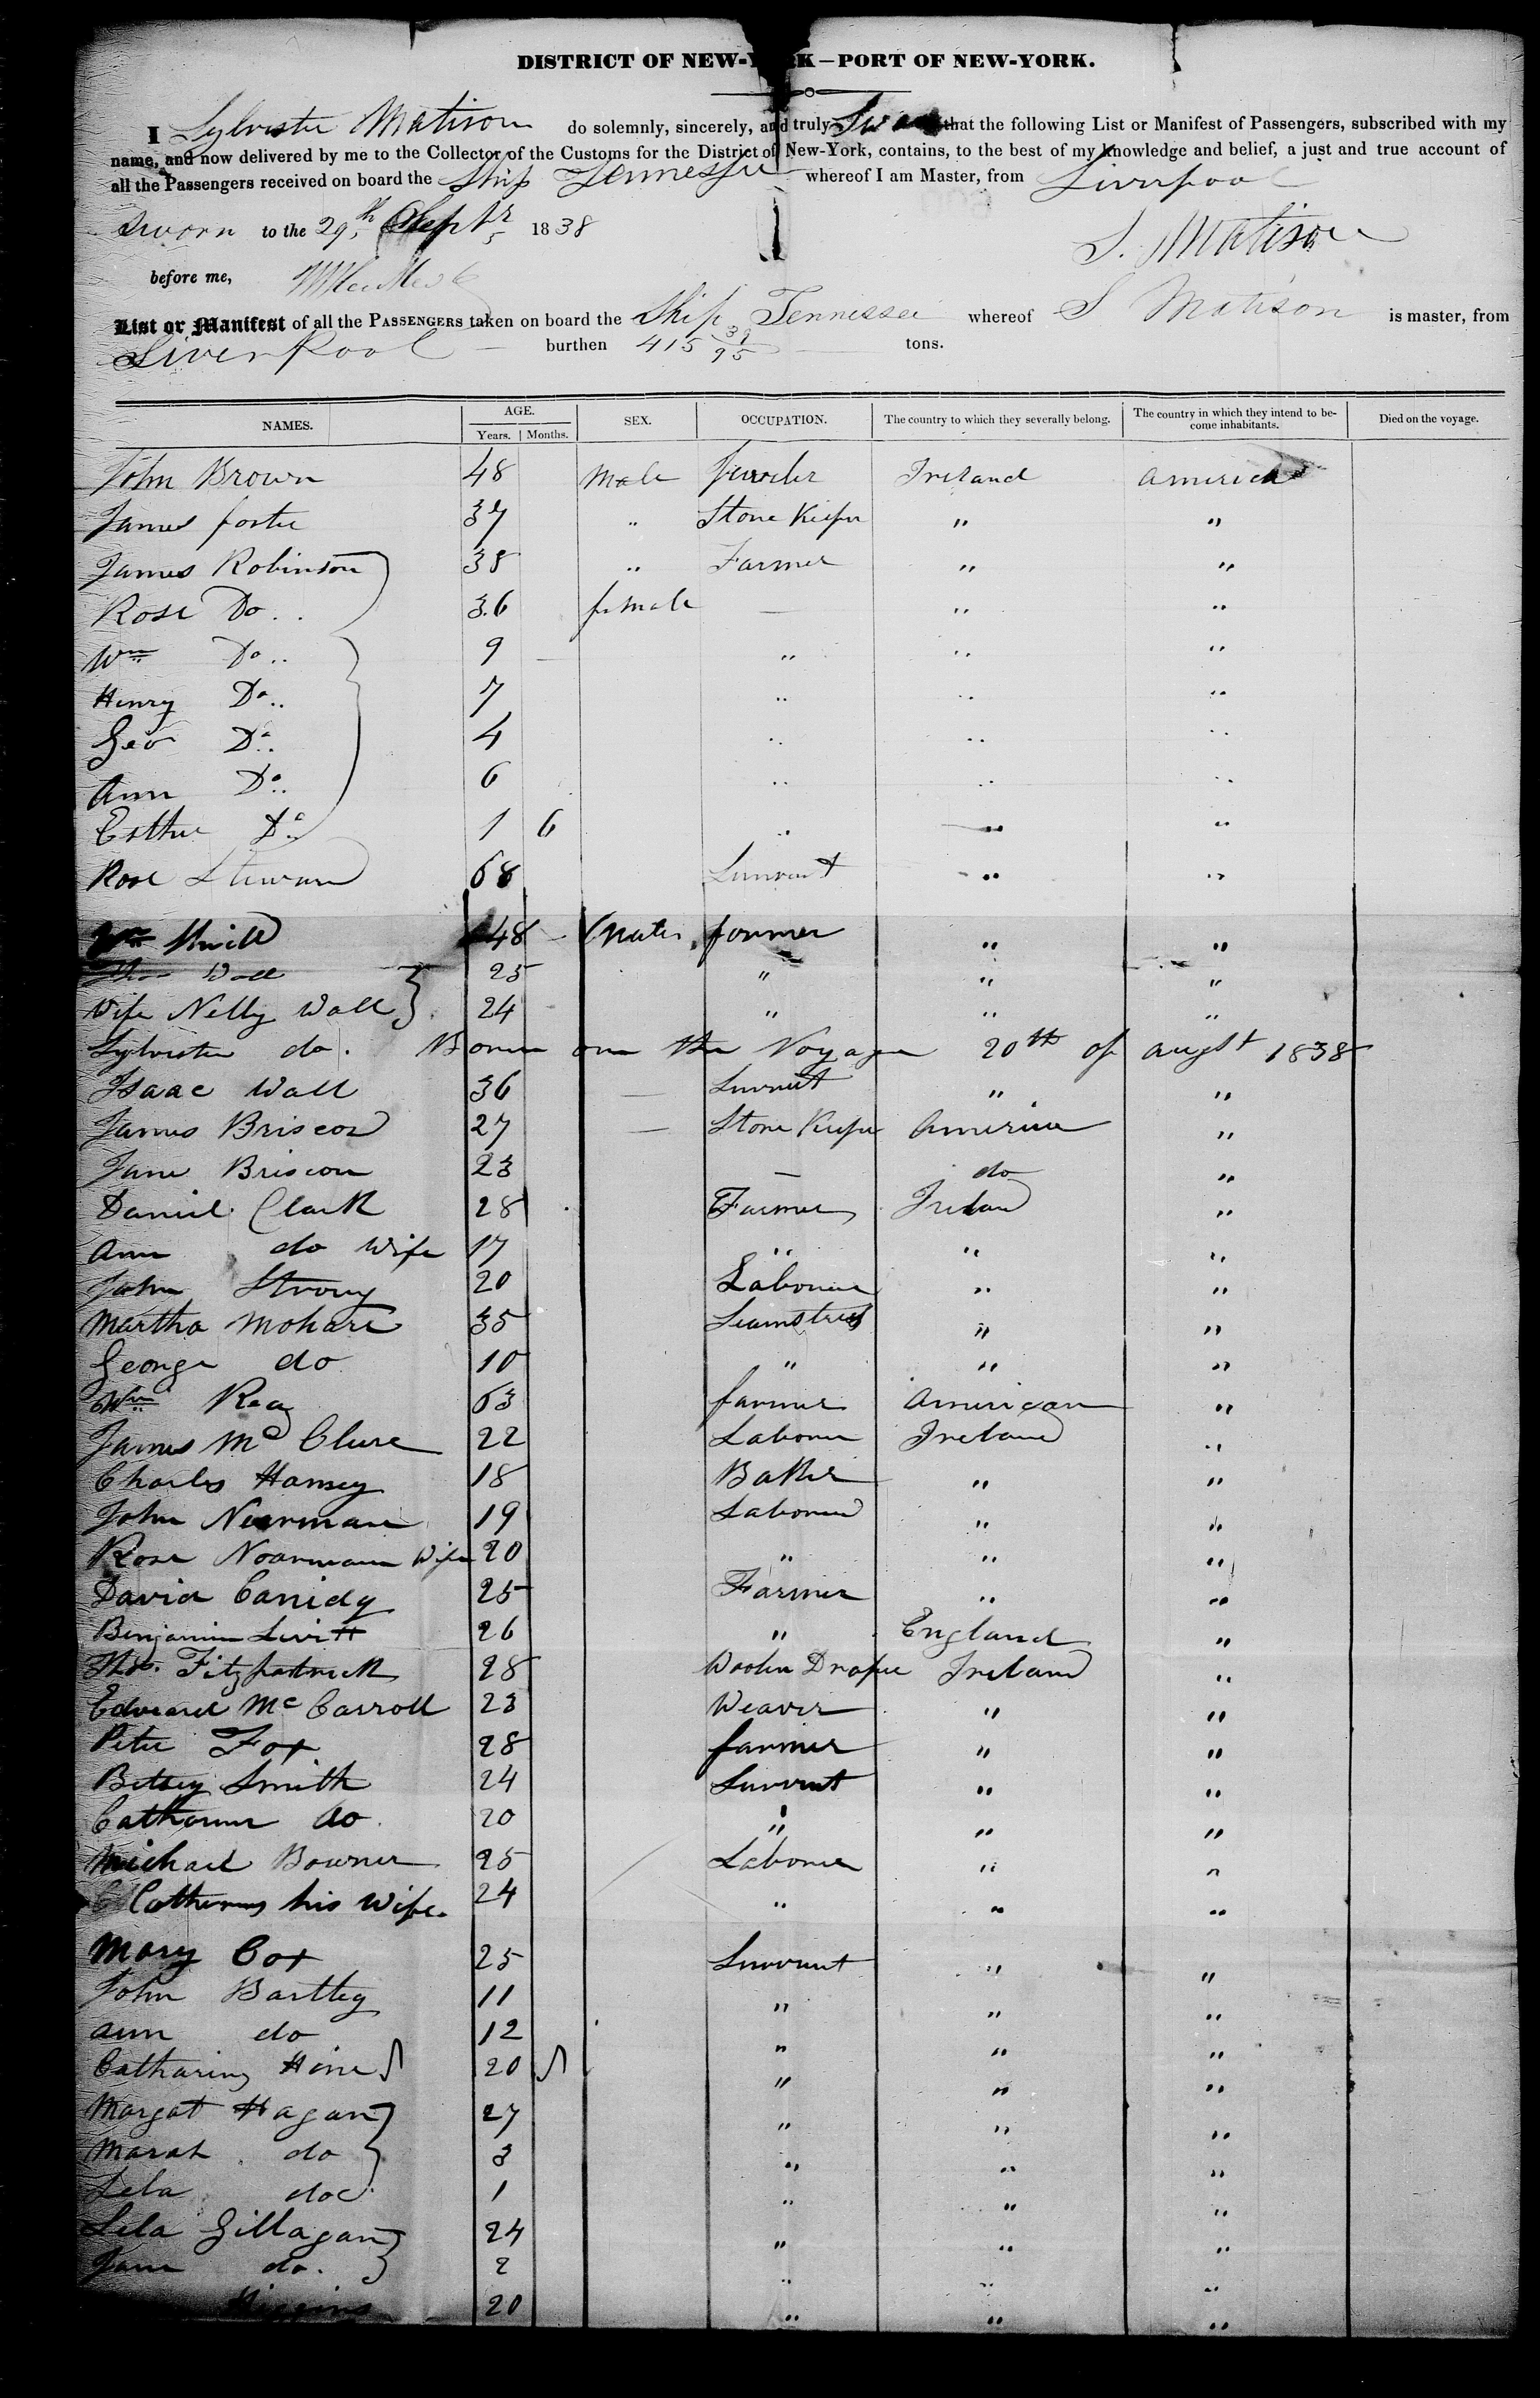 DISTRICT OF NEW-YORK—PORT OF NEW-YORK.
I Sylvester Matison do solemnly, sincerely, and truly Swear that the following List or Manifest of Passengers, subscribed with my
name, and now delivered by me to the Collector of the Customs for the District of New-York, contains, to the best of my knowledge and belief, a just and true account of
all the Passengers received on board the Ship Tennessee whereof I am Master, from Liverpool
Sworn to the 29th Septr 1838
S. Matison
before me,
List or Manifest of all the PASSENGERS taken on board the Ship Tennessee whereof S Matison is master, from
Liverpool burthen 415 39/95 tons.
NAMES. AGE. Years. Months. SEX. OCCUPATION. The country to which they severally belong. The country in which they intend to become inhabitants. Died on the voyage.
John Brown 48 Male Ireland America
James foster 37 " Store Keeper " "
James Robinson 38 " Farmer " "
Rose Do 36 female — " "
Wm Do 9 " " "
Henry Do 7 " " "
Geo Do 4 " " "
Ann Do 6 " " "
Esther Do 1 6 " " "
Rose 68 Servant " "
Wm 48 farmer " "
Thos Wall 25 " " "
Wife Nelly Wall 24 " " "
Sylvester do. Born on the Voyage 20th of Augst 1838
Isaac Wall 36 — Servant " "
James Briscoe 27 — Store Keeper America "
Jane Briscoe 23 — do "
Daniel Clark 28 Farmer Ireland "
Ann do Wife 17 " " "
John Strong 20 Labourer " "
Martha Mohare 35 Seamstress " "
George do 10 " " "
Wm Rea 63 farmer American "
James Mc Clure 22 Labourer Ireland "
Charles Hamsey 18 Baker " "
John Newman 19 Labourer " "
Rose Noarman Wife 20 " " "
David Canidy 25 Farmer " "
Benjamin Levitt 26 " England "
Thos. Fitzpatrick 28 Woolen Draper Ireland "
Edward Mc Carroll 23 Weaver " "
Peter Fox 28 farmer " "
Betsey Smith 24 Servant " "
Catharine do 20 " " "
Michael Bowner 25 Labourer " "
Catherine his Wife. 24 " " "
Mary Cox 25 Servant " "
John Bartley 11 " " "
Ann do 12 " " "
Catharine Hine 20 " " "
Margat Hagan 27 " " "
Marah do 3 " " "
Lela do 1 " " "
Lela Gillagan 24 " " "
Jane do. 2 " " "
20 " " "